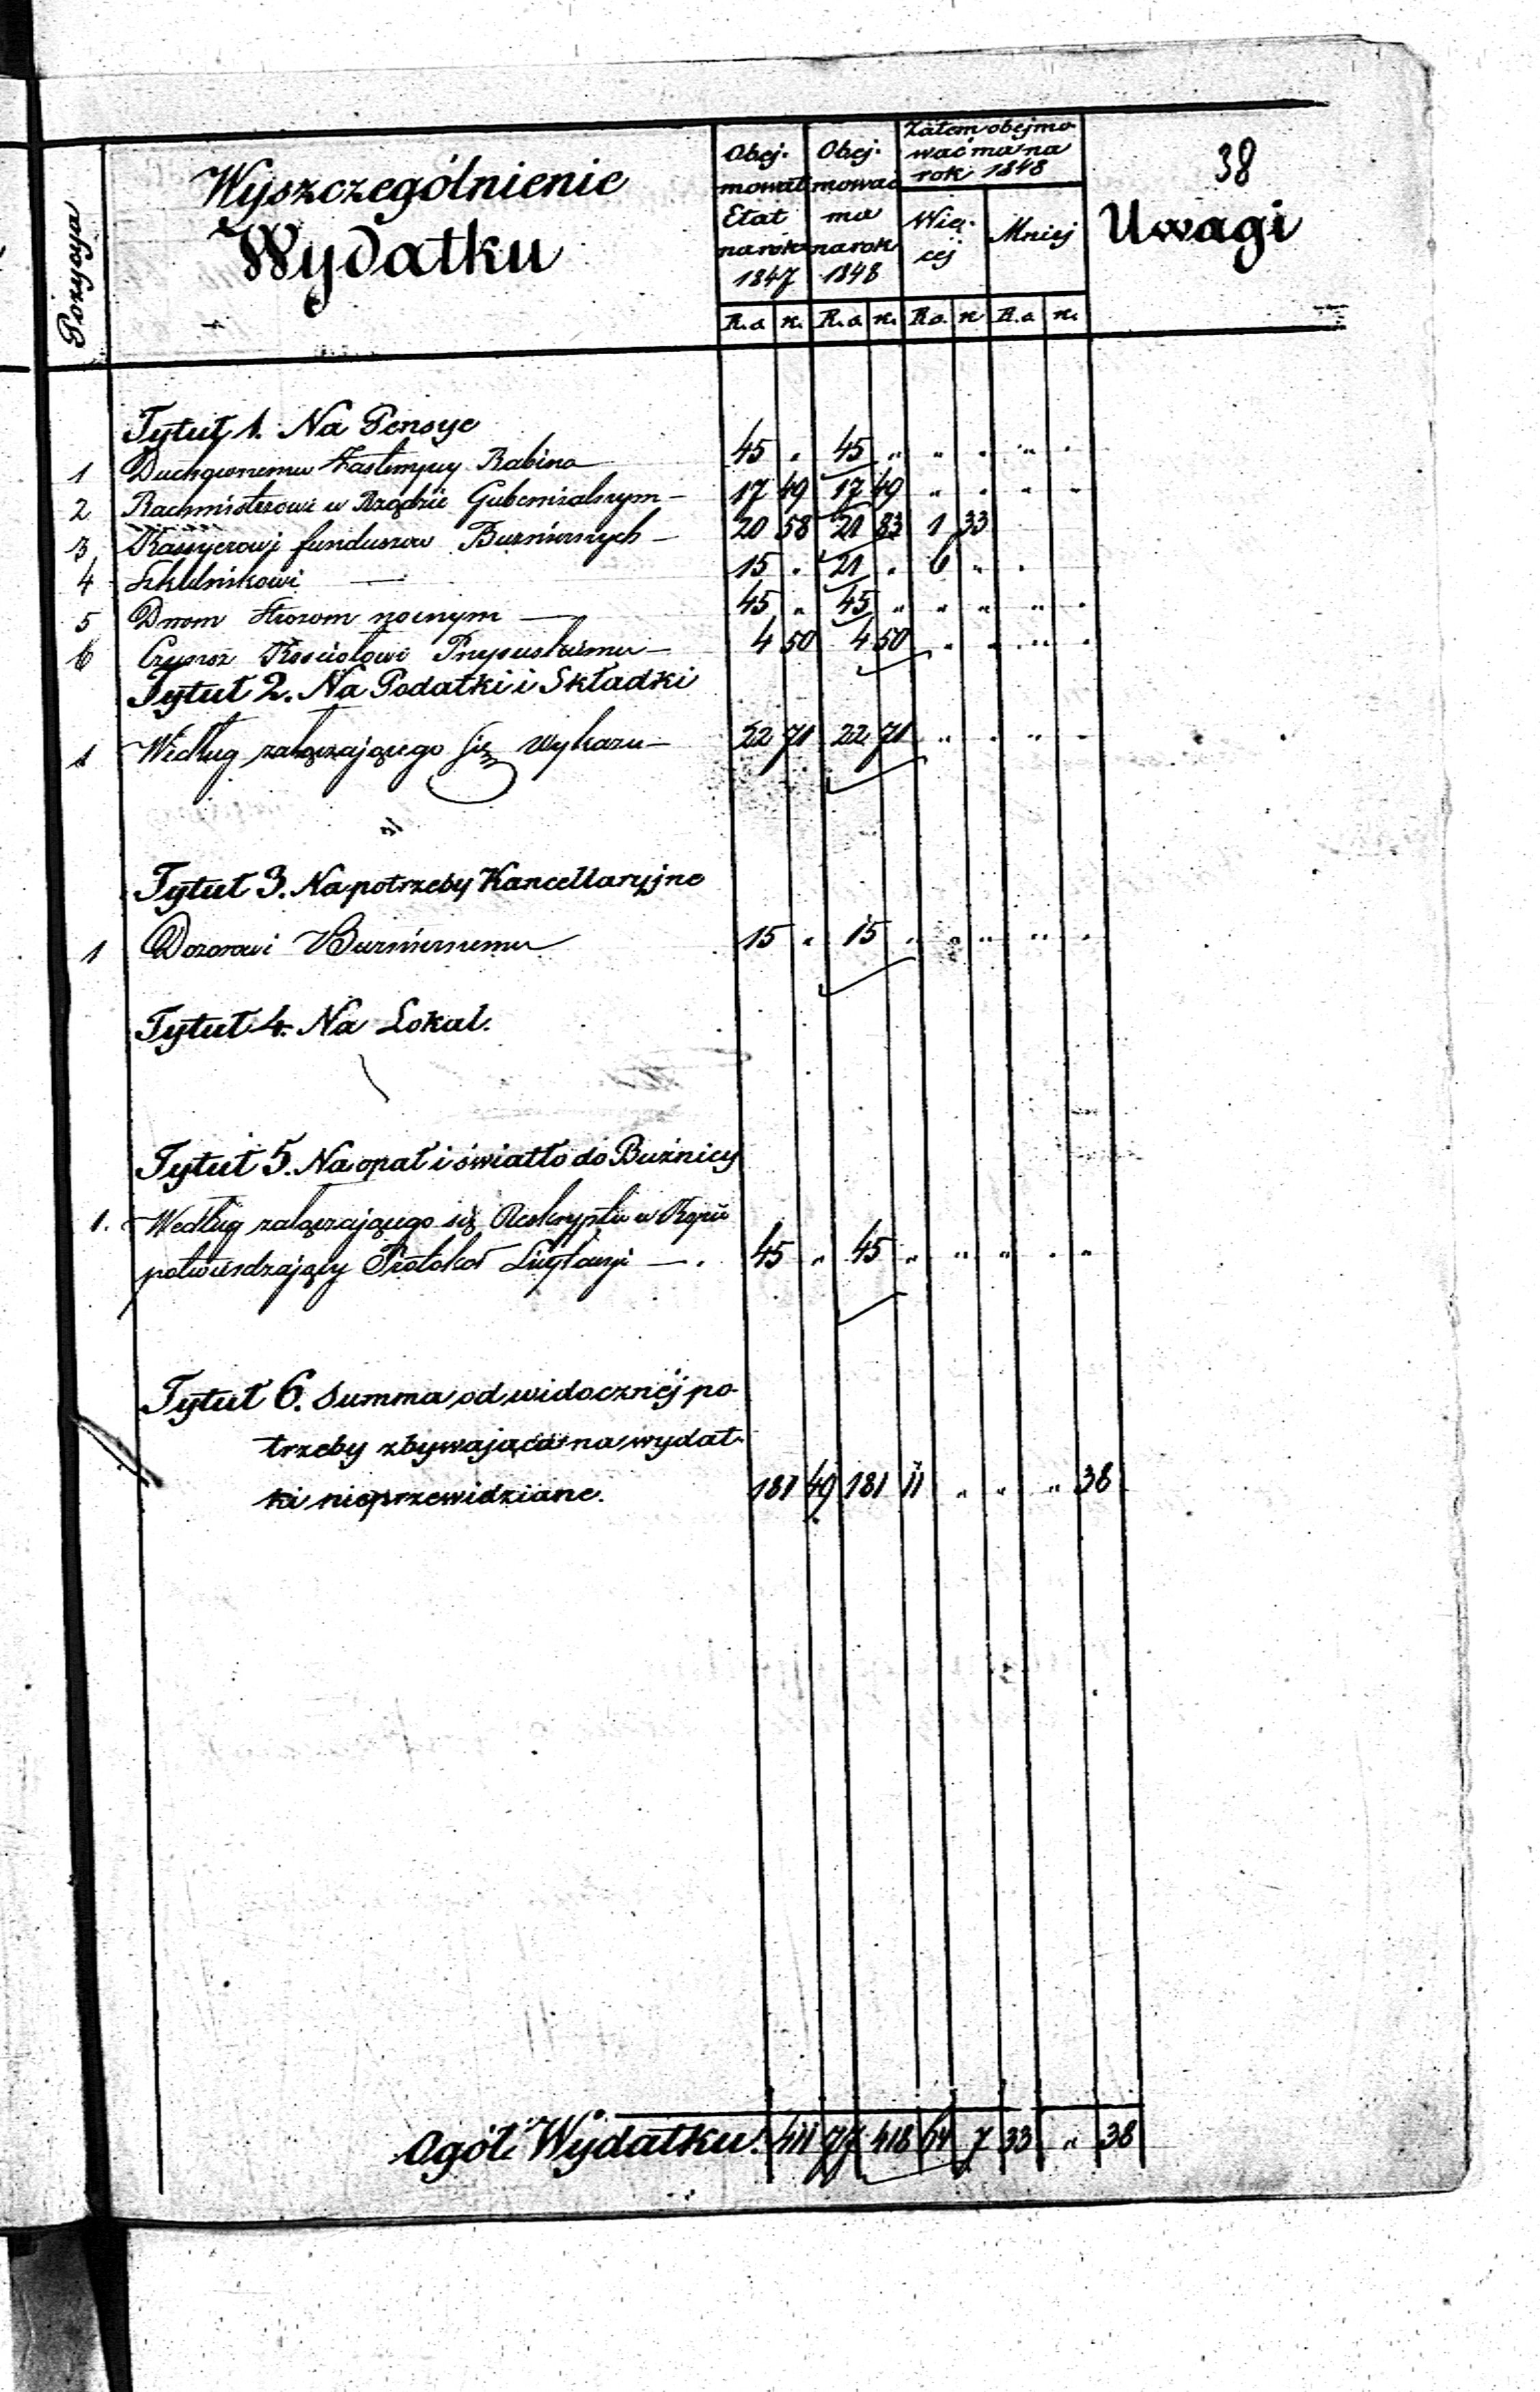 38
Pozycya
Wyszczególnienie
Wydatku
Obej-
mował
Etat
na rok
1847
Obej-
mować
ma
na rok
1848
Zatem obejmo-
wać ma na
rok 1848
Wię-
cej
Mniej
Uwagi
R.s. k. R.s. k. R.s. k. R.s. k.
Tytuł 1. Na Pensye
1 Duchownemu Zastempcy Rabina — 45 " 45 " " " " "
2 Rachmistrzowi w Rządzie Gubernialnym — 17 49 17 49 " " " "
3 Kassyerowi funduszow Bużniczych — 20 58 21 83 1 33
4 Szkolnikowi — 15 " 21 " 6 " "
5 Dwom Strozom nocnym — 45 " 45 " " " " "
6 Czynsz Kościołowi — 4 50 4 50 " " " "
Tytuł 2. Na Podatki i Składki
1 Według załączającego się Wykazu — 22 71 22 71 " " " "
Tytuł 3. Na potrzeby Kancellaryjne
1 Dozorowi Bużniczemu 15 " 15 " " " " "
Tytuł 4. Na Lokal.
Tytuł 5. Na opał i światło do Bużnicy
1. Według załączającego się Reskryptu w Kopii
potwierdzający Protokoł Licytacyi — 45 " 45 " " " " "
Tytuł 6. Summa od widocznéj po-
trzeby zbywająca na wydat-
ki nieprzewidziane. 181 49 181 11 " " " 38
Ogół Wydatku. 411 77 418 64 7 33 " 38